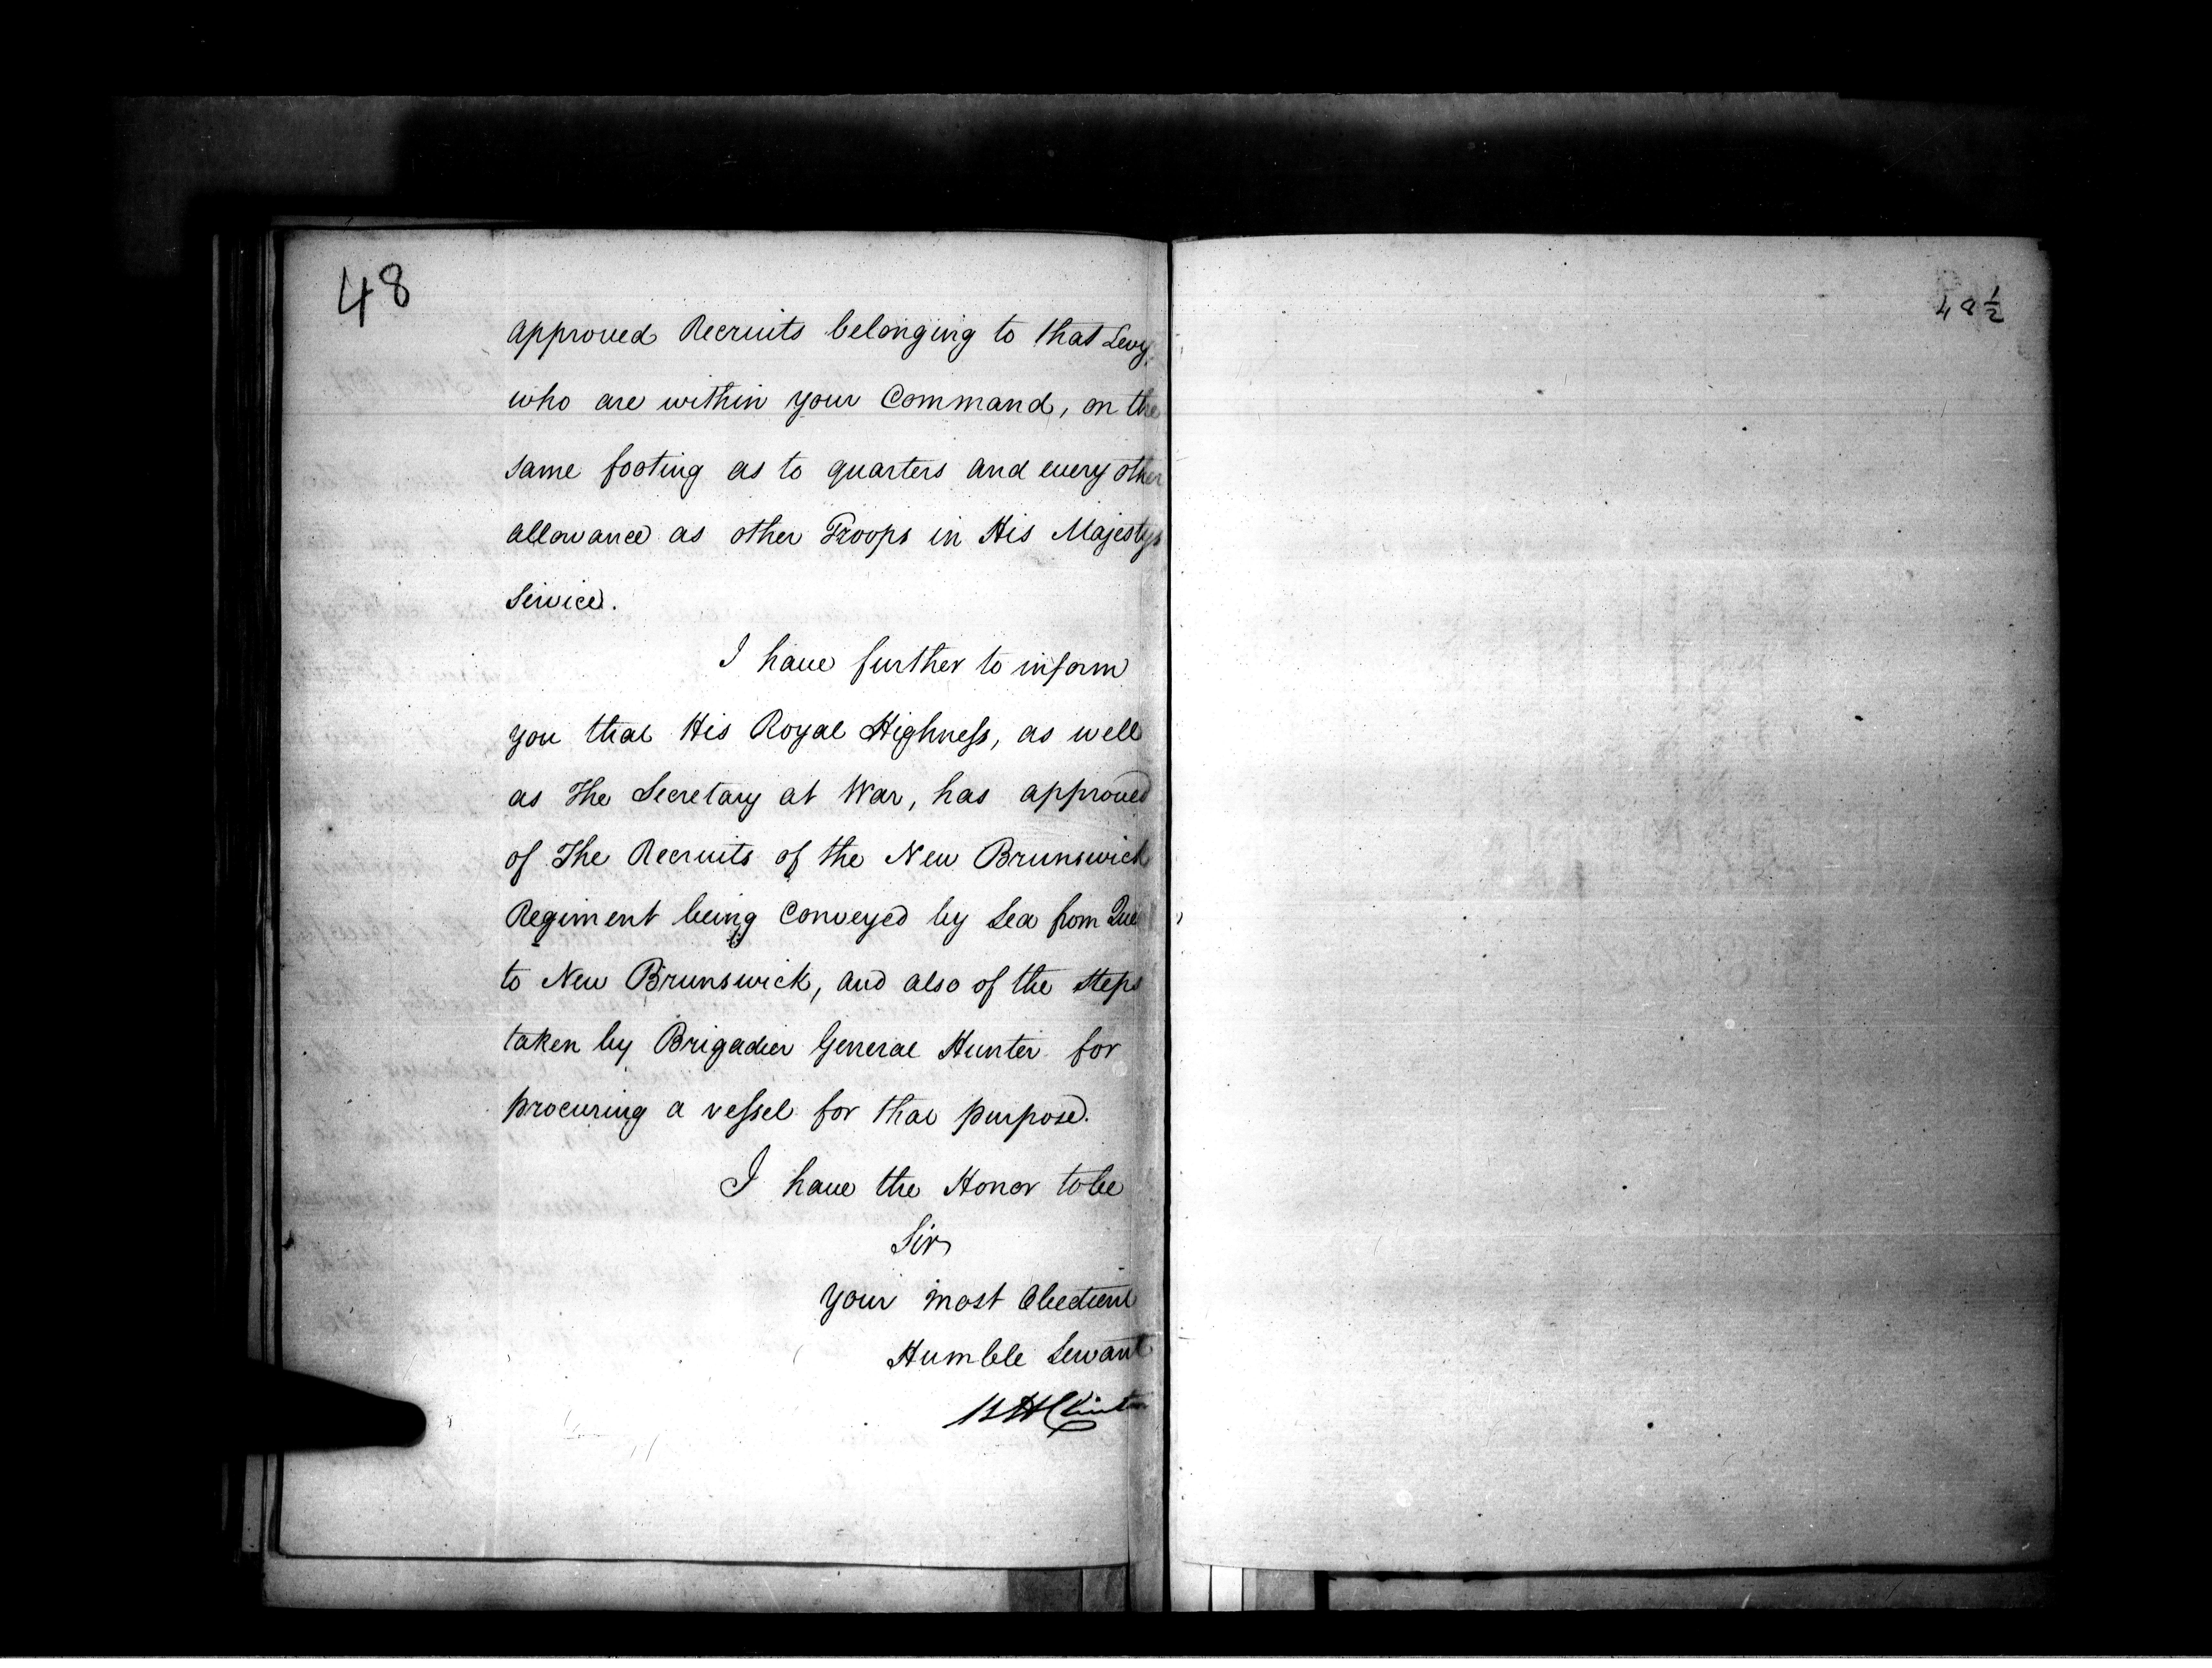 48
approved Recruits belonging to that Levy
who are within your Command, on the
same footing as to quarters and every other
allowance as other Troops in His Majestys
Service.
I have further to inform
you that His Royal Highness, as well
as The Secretary at War, has approved
of The Recruits of the New Brunswick
Regiment being Conveyed by Sea from Que
to New Brunswick, and also of the steps
taken by Brigadier General Hunter for
procuring a vessel for that purpose.
I have the Honor to be
Sir
Your most Obedient
Humble Servant
Clinton
48 1/2